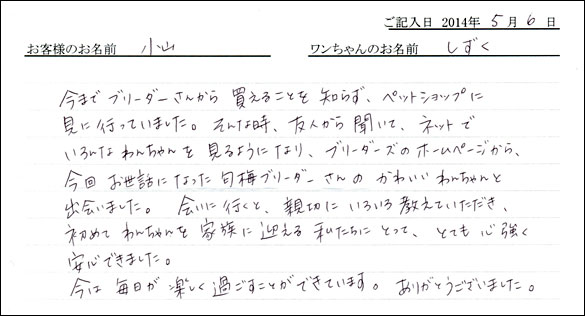 ご記入日 2014年 5月 6日
お客様のお名前 小山 ワンちゃんのお名前 しずく
今まで ブリーダーさんから 買えることを 知らず、ペットショップに
見に行っていました。そんな時、友人から 聞いて、ネットで
いろんな わんちゃんを 見るようになり、ブリーダーズの ホームページから、
今回 お世話になった 旬梅ブリーダーさんの かわいい わんちゃんと
出会いました。 会いに行くと、親切に いろいろ 教えていただき、
初めて わんちゃんを 家族に 迎える 私たちに とって、とても 心強く
安心できました。
今は 毎日が 楽しく 過ごすことが できています。 ありがとうございました。